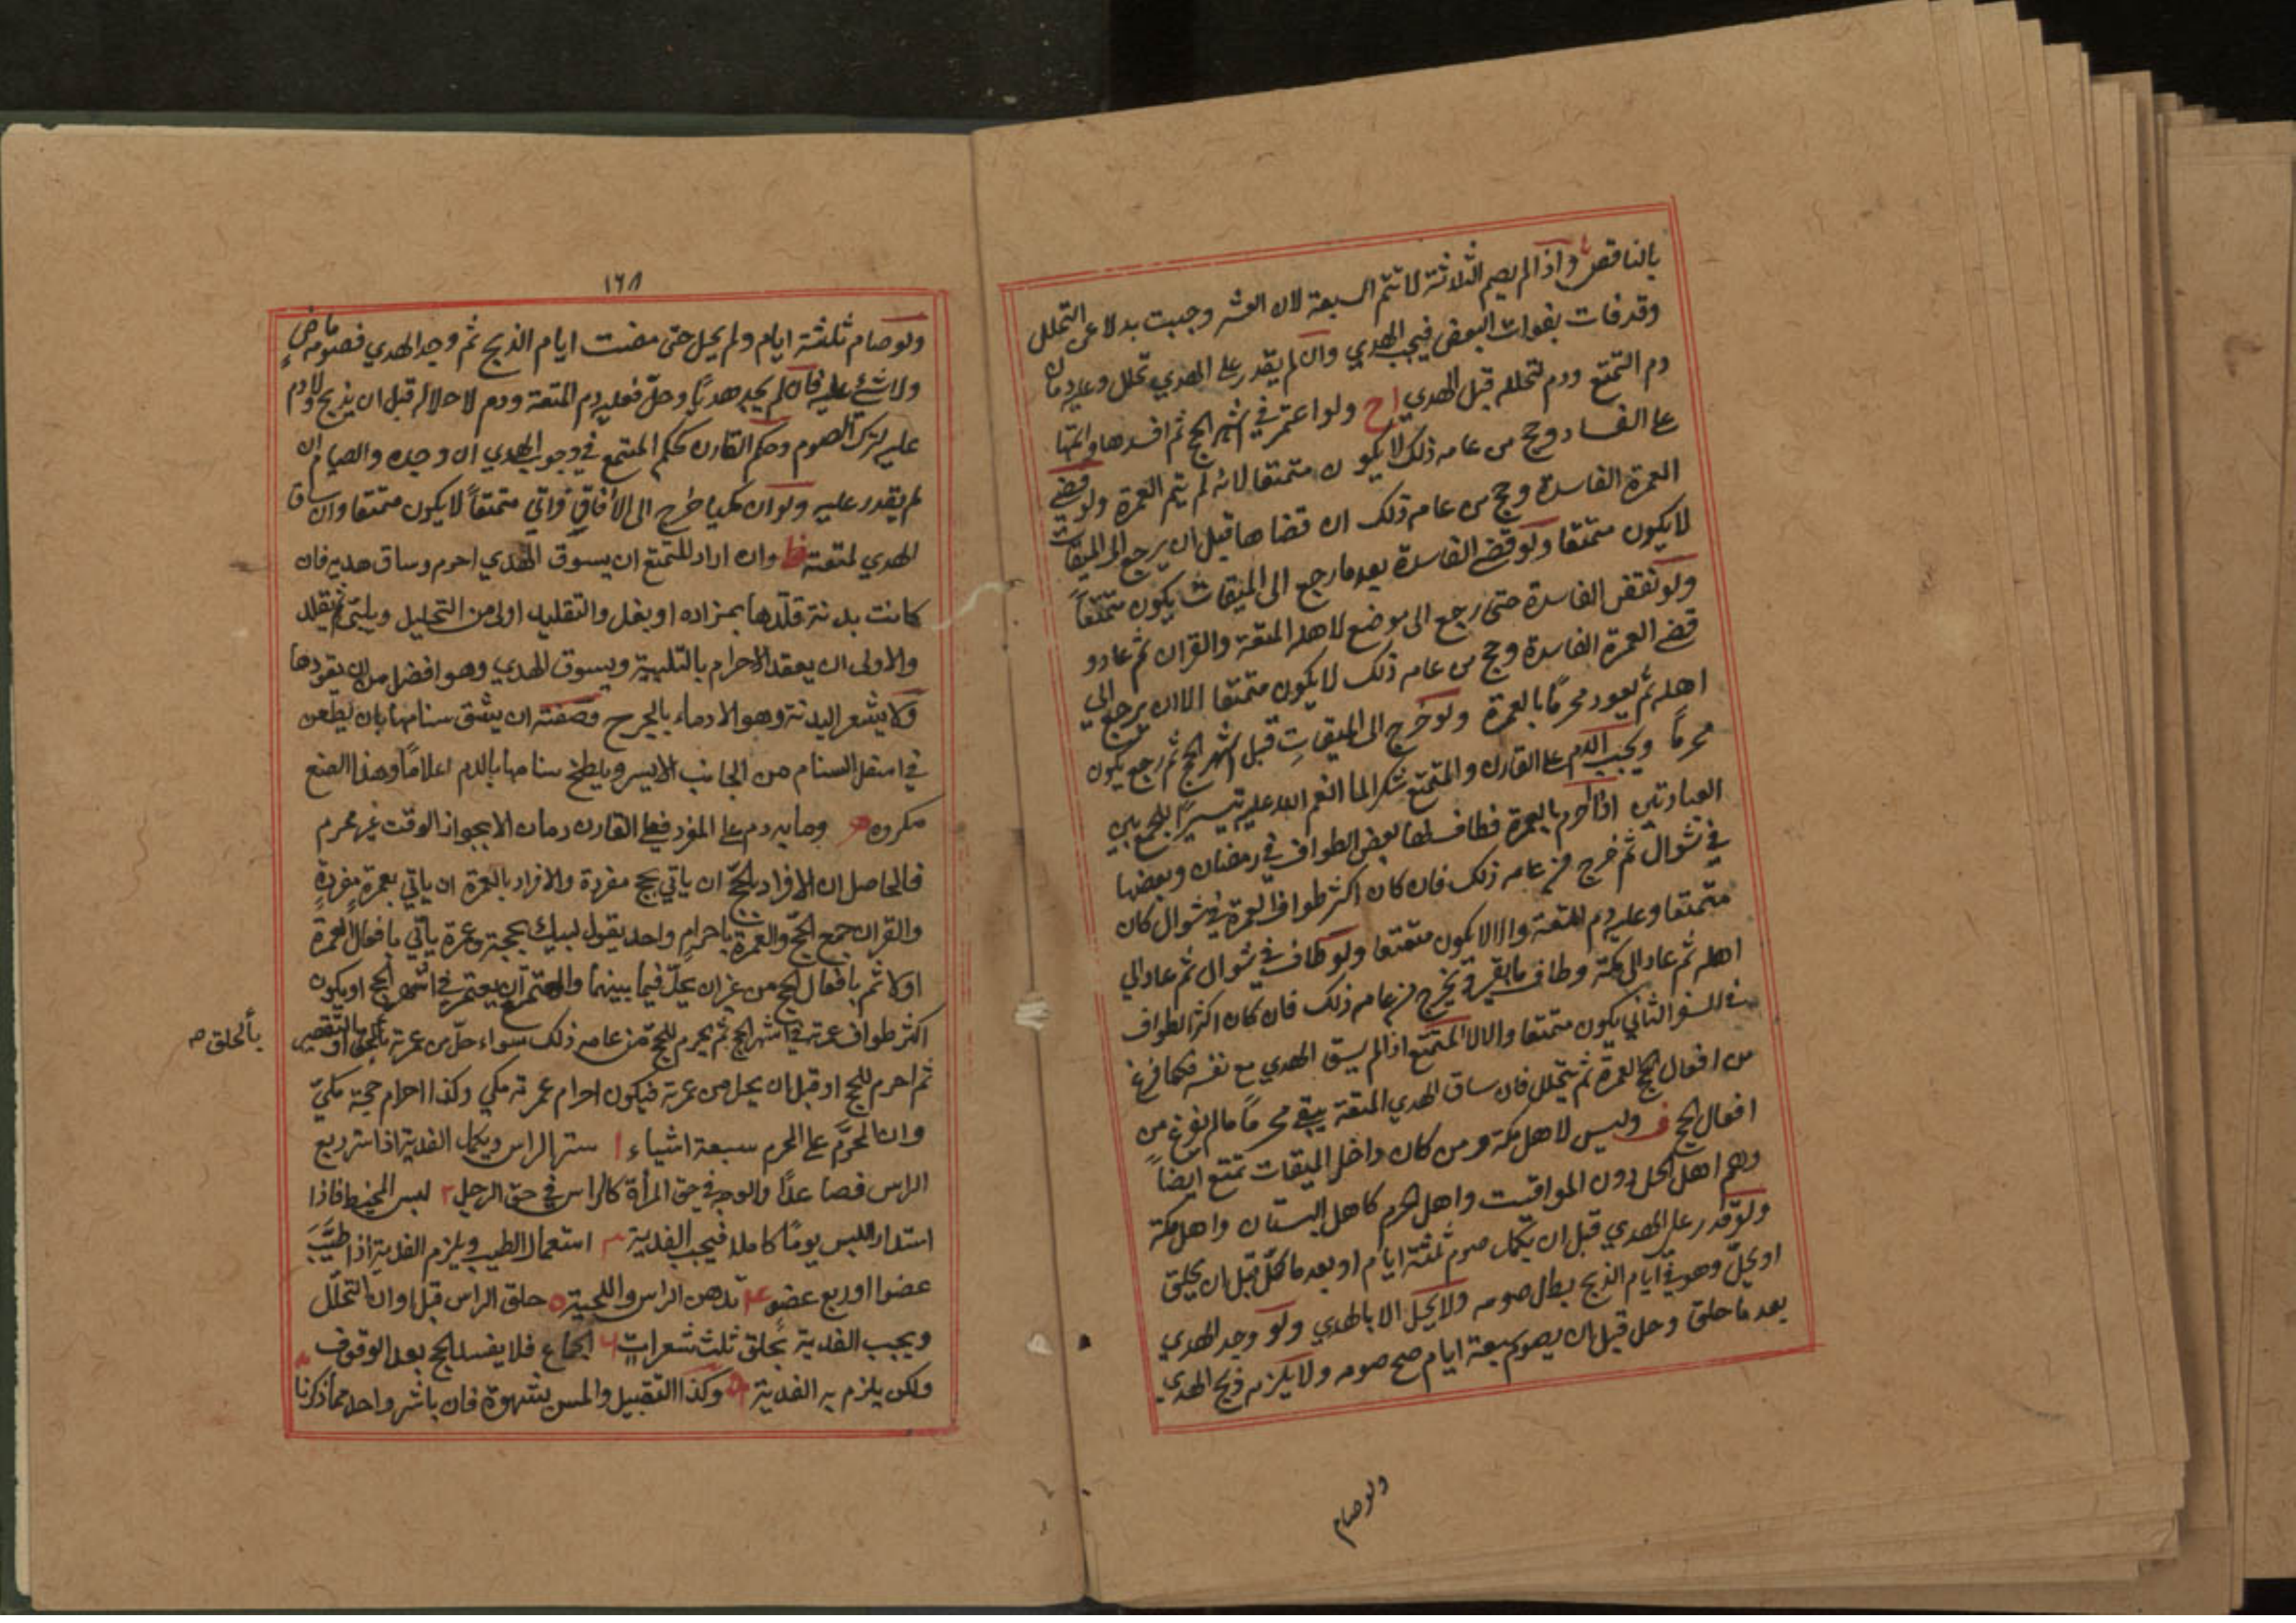 بالناقص واذا لم يصم الثلاثة لا تتم السبعة لان العشر وجبت بدلا عن التحلل
وقد فات بفوات البعض فيجب الهدي وان لم يقدر على الهدي تحلل وعليه دمان
دم التمتع ودم لتحلله قبل الهدي اح ولو اعتمر في اشهر الحج ثم افسدها واتمها
على الفساد وحج من عامه ذلك لا يكون متمتعا لانه لم يتم العمرة ولو قضى
العمرة الفاسدة وحج من عامه ذلك ان قضاها قبل ان يرجع الى الميقات
لا يكون متمتعا ولو قضى الفاسدة بعد ما رجع الى الميقات يكون متمتعاً
ولو نقض الفاسدة حتى رجع الى موضع لاهله المتعة والقران ثم عاد و
قضى العمرة الفاسدة وحج من عامه ذلك لا يكون متمتعا الا ان يرجع الى
اهله ثم يعود محرمًا بالعمرة ولو خرج الى الميقات قبل اشهر الحج ثم رجع يكون
محرماً ويجب الدم على القارن والمتمتع شكرا لما انعم الله عليه تيسيراً للجمع بين
العبادتين اذا احرم بالعمرة فطاف لها بعض الطواف في رمضان وبعضها
في شوال ثم خرج من عامه ذلك فان كان اكثر طواف العمرة في شوال كان
متمتعا وعليه دم المتعة والا لا يكون متمتعا ولو طاف في شوال ثم عاد الى
اهله ثم عاد الى مكة وطاف ما بقي وحج من عامه ذلك فان كان اكثر الطواف
في السفر الثاني يكون متمتعا والا لا المتمتع اذا لم يسق الهدي مع نفسه فكما فرغ
من افعال العمرة ثم يتحلل فان ساق الهدي المتعة يبقى محرماً ما لم يفرغ من
افعال الحج ف وليس لاهل مكة ومن كان داخل الميقات تمتع ايضاً
وهم اهل الحل دون المواقيت واهل الحرم كاهل البستان واهل مكة
ولو قدر على الهدي قبل ان يكمل صوم ثلثة ايام او بعد ما كمل قبل ان يحلق
او يحل وهو في ايام الذبح بطل صومه ولا يحل الا بالهدي ولو وجد الهدي
بعد ما حلق وحل قبل ان يصوم سبعة ايام صح صومه ولا يلزمه ذبح الهدي
ولو صام
١٦٨
ولو صام ثلثة ايام ولم يحل حتى مضت ايام الذبح ثم وجد الهدي فصومه ماض
ولا شئ عليه فان لم يجد هدياً وحل فعليه دم المتعة ودم لاحلاله قبل ان يذبح ولا دم
عليه لترك الصوم وحكم القارن كحكم المتمتع في وجوب الهدي ان وجده والصيام ان
لم يقدر عليه ولو ان مكيا خرج الى الافاق واتى متمتعاً لا يكون متمتعا وان ساق
الهدي لمتعته ظ وان اراد المتمتع ان يسوق الهدي احرم وساق هديه فان
كانت بدنة قلدها بمزاده او بغل والتقليد اولى من التحليل ويلبي ثم يقلد
والاولى ان يعقد الاحرام بالتلبية ويسوق الهدي وهو افضل من ان يقودها
ولا يشعر البدنة وهو الادماء بالجرح وصفته ان يشق سنامها بان يطعن
في اسفل السنام من الجانب الايسر ويلطخ سنامها بالدم اعلاماً وهذا الصنع
مكروه وما به دم على المفرد فعلى القارن دمان الا يجوز الوقت غير محرم
فالحاصل ان الافراد بالحج ان ياتي بحج مفردة والافراد بالعمرة ان ياتي بعمرة مفردة
والقران جمع الحج والعمرة باحرام واحد يقول لبيك بحجة وعمرة ياتي بافعال العمرة
اولا ثم بافعال الحج من غير ان يحل فيما بينهما والمتمتع ان يعتمر في اشهر الحج او يكون
اكثر طواف عمرته في اشهر الحج ثم يحرم للحج من عامه ذلك سواء حل من عمرته او بالتقصير
بالحلق ص
ثم احرم للحج او قبل ان يحل من عمرته فيكون احرام عمرته مكي وكذا احرام حجته مكي
وان المحرَّم على المحرم سبعة اشياء ١ ستر الراس ويكمل الفدية اذا ستر ربع
الراس فصاعدًا والوجه في حق المرأة كالراس في حق الرجل ٢ لبس المخيط فاذا
استدار اللبس يومًا كاملا فيجب الفدية ٣ استعمال الطيب ويلزم الفدية اذا طيَّبَ
عضوا او ربع عضو ٤ تدهن الراس واللحية ٥ حلق الراس قبل اوان التحلل
ويجب الفدية بحلق ثلث شعرات ٦ الجماع فلا يفسد الحج بعد الوقوف
ولكن يلزم به الفدية ٧ وكذا التقبيل والمس بشهوة فان باشر واحد مما ذكرنا